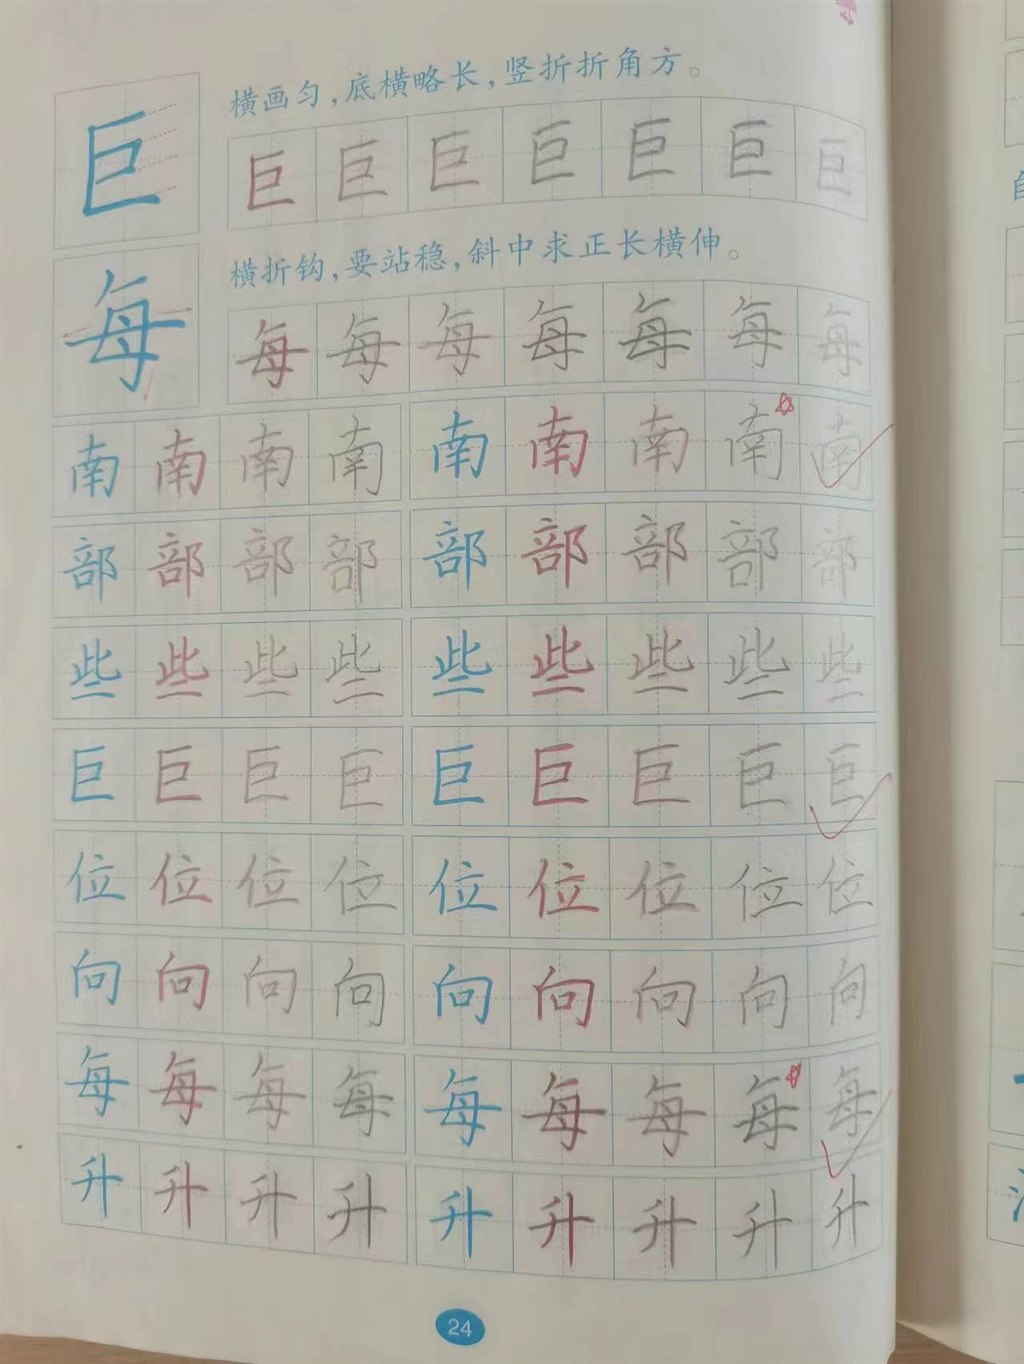 横画匀,底横略长,竖折折角方。
巨 巨 巨 巨 巨 巨 巨 巨
横折钩,要站稳,斜中求正长横伸。
每 每 每 每 每 每 每 每
南 南 南 南 南 南 南 南 南
部 部 部 部 部 部 部 部 部
些 些 些 些 些 些 些 些 些
巨 巨 巨 巨 巨 巨 巨 巨 巨
位 位 位 位 位 位 位 位 位
向 向 向 向 向 向 向 向 向
每 每 每 每 每 每 每 每 每
升 升 升 升 升 升 升 升 升
24